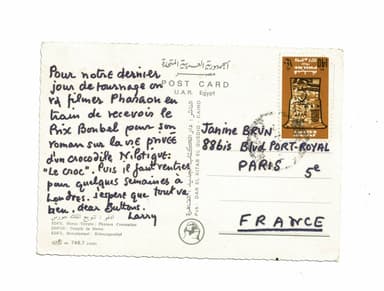 الجمهورية العربية المتحدة
مصر
POST CARD
U.A.R. Egypt
Pour notre dernier
jour de tournage on
va filmer Pharaon en
train de recevoir le
Prix Bonbal pour son
roman sur la vie privée
d'un crocodile Nilotique:
"Le Croc". Puis il faut rentrer
pour quelques semaines à
Londres. J'espère que tout va
bien, dear Buttons.
Larry
Janine BRUN
88bis Blvd PORT-ROYAL
PARIS 5e
FRANCE